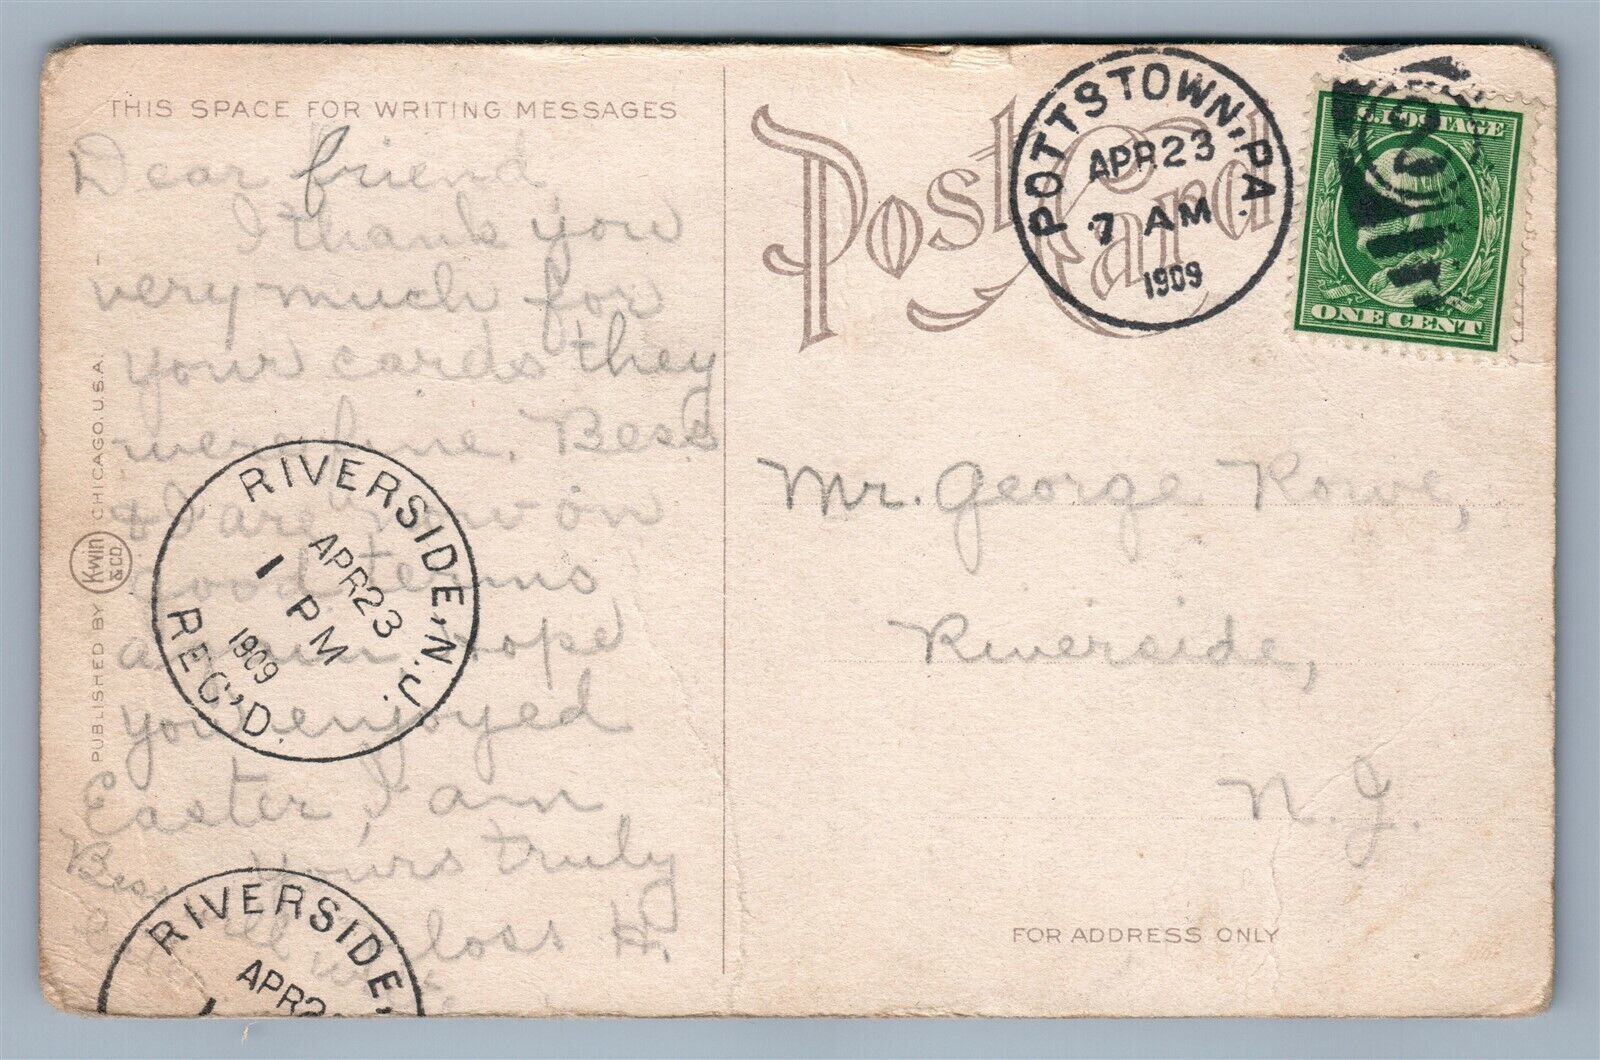 THIS SPACE FOR WRITING MESSAGES
Dear friend,
I thank you
very much for
your cards they
were fine. Bess
& I are now on
good terms
again hope
you enjoyed
Easter, I am
Yours truly
Floss H.
Bess will
wk.
PUBLISHED BY Kwin & CO. CHICAGO, U.S.A.
RIVERSIDE, N.J.
APR 23
1 PM
1909
REC'D.
RIVERSIDE,
APR 2
1
Post Card
POTTSTOWN, PA.
APR 23
7 AM
1909
U.S. POSTAGE
2
ONE CENT
Mr. George Rowe,
Riverside,
N. J.
FOR ADDRESS ONLY